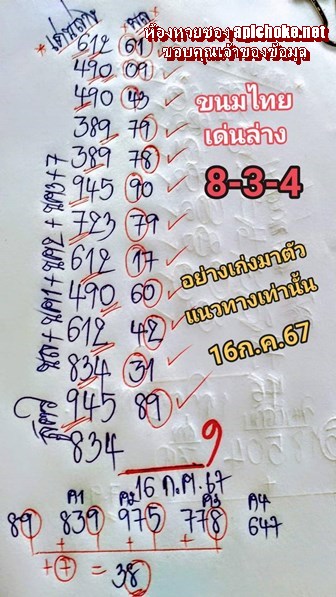 ห้องหวยซอง aplchoke.net
ขอบคุณเจ้าของข้อมูล
612 67
490 09
490 43
ขนมไทย
389 79
เด่นล่าง
389 78
8-3-4
945 90
723 79
612 17
อย่างเก่งมาตัว
490 60
แนวทางเท่านั้น
612 42
16ก.ค.67
834 31
945 89
834
9
16 ก.ค.67
ค1 ค2 ค3 ค4
89 839 975 778 647
+7 = 38